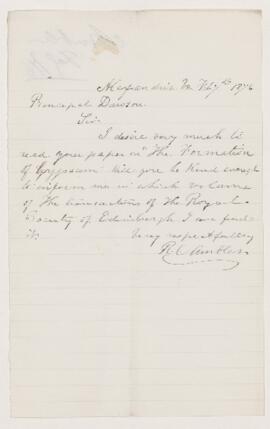 Alexandria Va Feby 7th 1876
Principal Dawson
Sir
I desire very much to
read your paper on "The Formation
of Gypsum" Will you be kind enough
to inform me in which volume
of the transactions of the Royal
Society of Edinburgh I can find
it
Very respectfully
R C Ambler